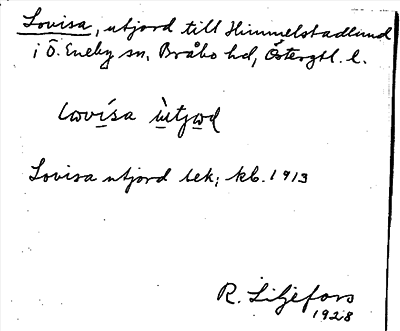 Lovisa, utjord till Himmelstadlund
i Ö. Eneby sn, Bråbo hd, Östergtl. l.
lovísa ùtjord
Lovisa utjord lek; kb. 1913
R. Liljefors
1928